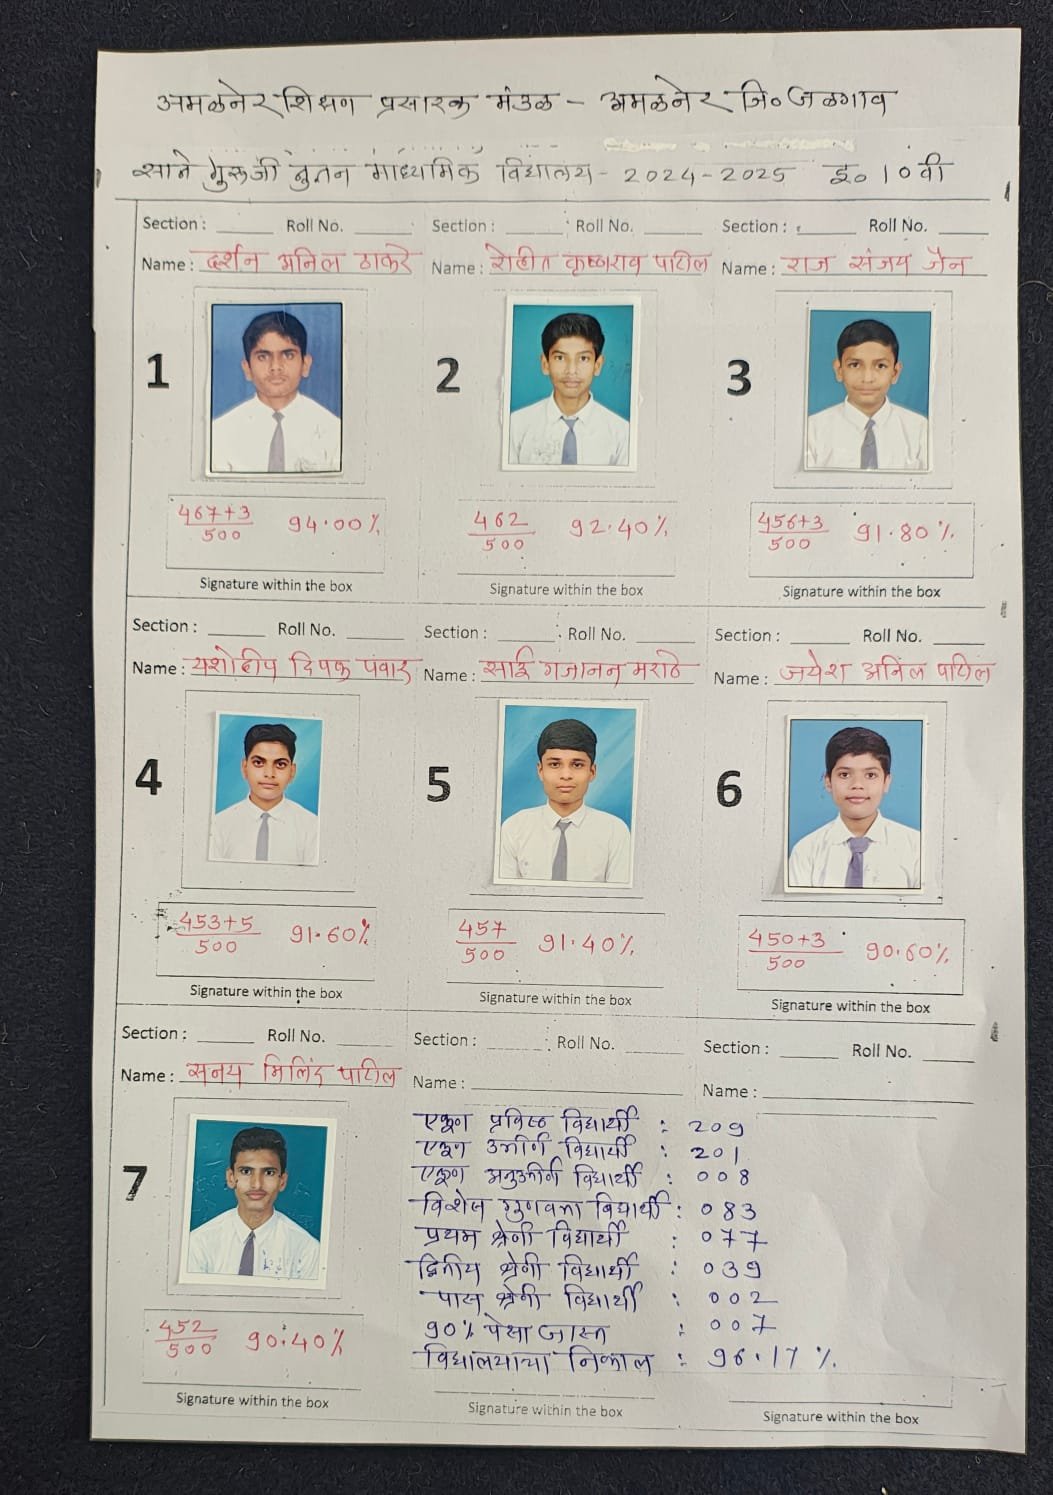 अमळनेर शिक्षण प्रसारक मंडळ - अमळनेर जि० जळगाव
साने गुरूजी नुतन माध्यमिक विद्यालय - 2024-2025 इ० 10 वी
Section : Roll No. Section : Roll No. Section : Roll No.
Name : दर्शन अनिल ठाकरे Name : रोहीत कृष्णराव पाटील Name : राज संजय जैन
1 2 3
467+3/500 94.00% 462/500 92.40% 456+3/500 91.80%
Signature within the box Signature within the box Signature within the box
Section : Roll No. Section : Roll No. Section : Roll No.
Name : यशोदीप दिपक पवार Name : साई गजानन मराठे Name : जयेश अनिल पाटील
4 5 6
453+5/500 91.60% 457/500 91.40% 450+3/500 90.60%
Signature within the box Signature within the box Signature within the box
Section : Roll No. Section : Roll No. Section : Roll No.
Name : सनय मिलिंद पाटील Name : Name :
7
एकूण प्रविष्ठ विद्यार्थी : 209
एकूण उत्तीर्ण विद्यार्थी : 201
एकूण अनुत्तीर्ण विद्यार्थी : 008
विशेष गुणवत्ता विद्यार्थी : 083
प्रथम श्रेणी विद्यार्थी : 077
द्वितीय श्रेणी विद्यार्थी : 039
पास श्रेणी विद्यार्थी : 002
90% पेक्षा जास्त : 007
विद्यालयाचा निकाल : 96.17 %
452/500 90.40%
Signature within the box Signature within the box Signature within the box